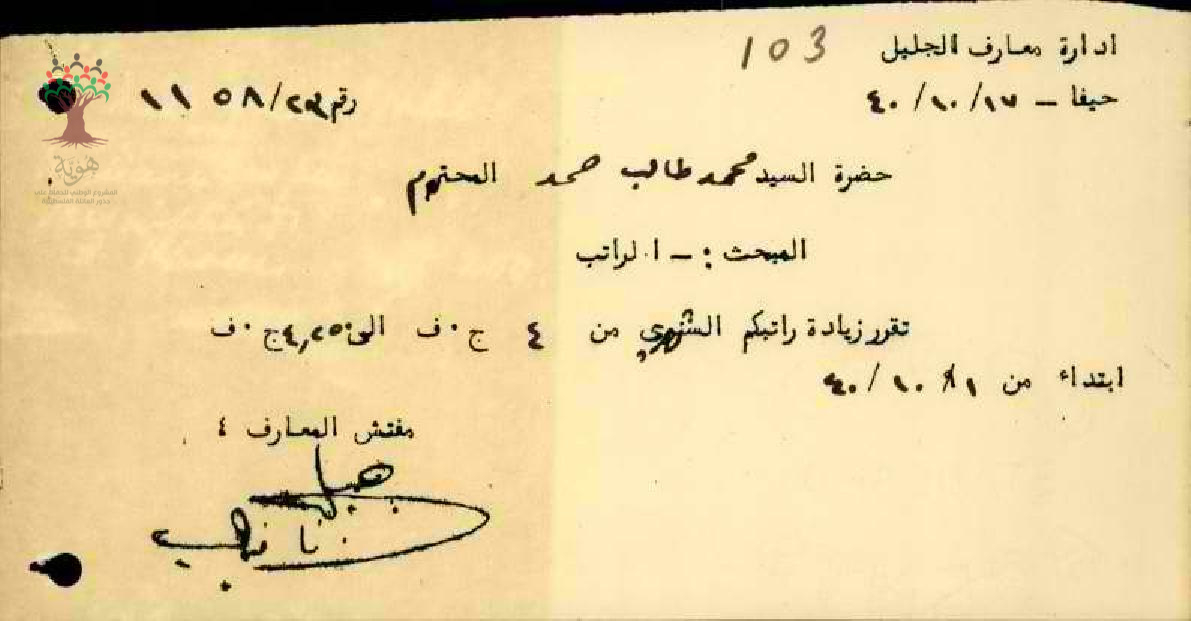 ادارة معارف الجليل
103
حيفا – ١٧/١٠/٤٠
رقم ١١٥٨/٢٣
حضرة السيد محمد طالب حمد المحترم
المبحث : – الراتب
تقرر زيادة راتبكم الشهري من ٤ ج٠ف الى ٤,٢٥٠ ج٠ف
ابتداء من ١/١٠/٤٠
مفتش المعارف
هوية
المشروع الوطني للحفاظ على
جذور العائلة الفلسطينية